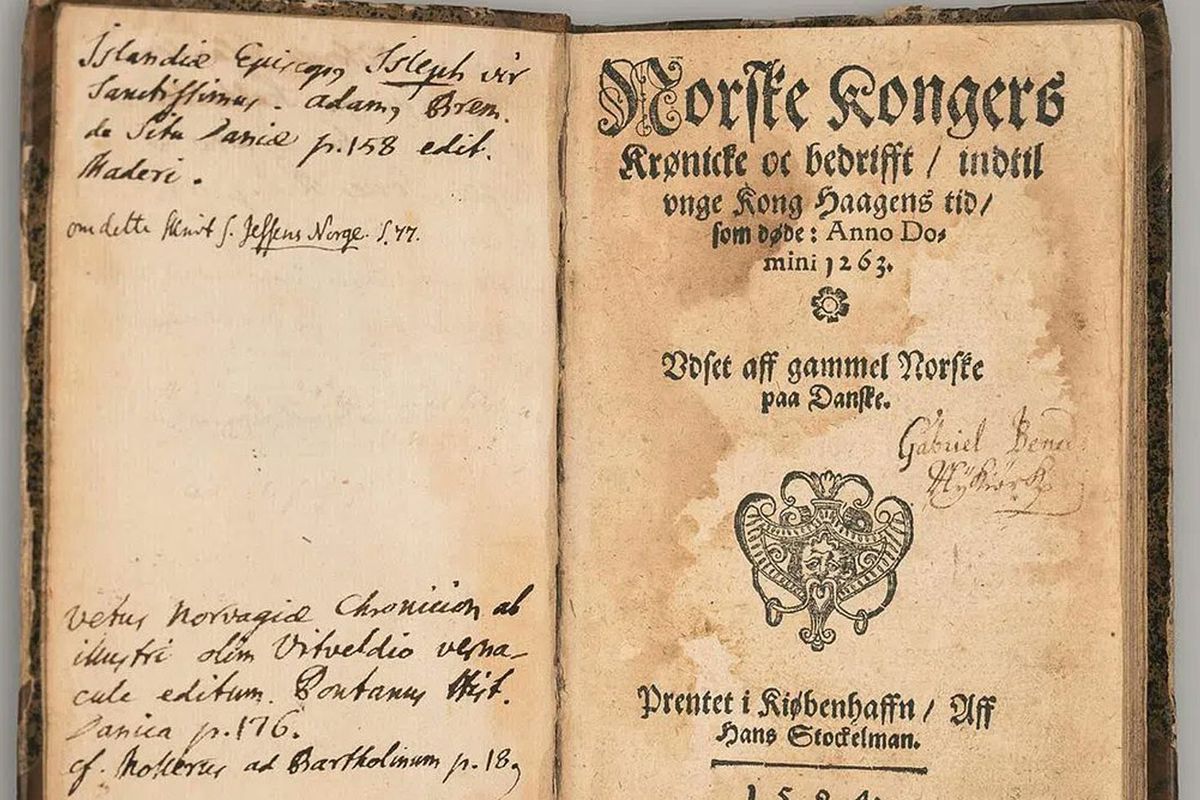 Islandiæ Episcopus Isleph vir
Sanctissimus. adamus Brem.
de Situ Daniæ p. 158 edit.
Maderi.
om dette skrivt s. Jessens Norge. S. 77.
vetus Norvagiæ Chronicion ab
illustri olim Vitveldio verna-
cule editum. Pontanus Hist.
Danica p. 176.
cf. Mollerus ad Bartholinum p. 18
Norske Kongers
Krønicke oc bedrifft / indtil
vnge Kong Haagens tid /
som døde: Anno Do-
mini 1263.
Vdset aff gammel Norske
paa Danske.
Gabriel
Prentet i Kiøbenhaffn / Aff
Hans Stockelman.